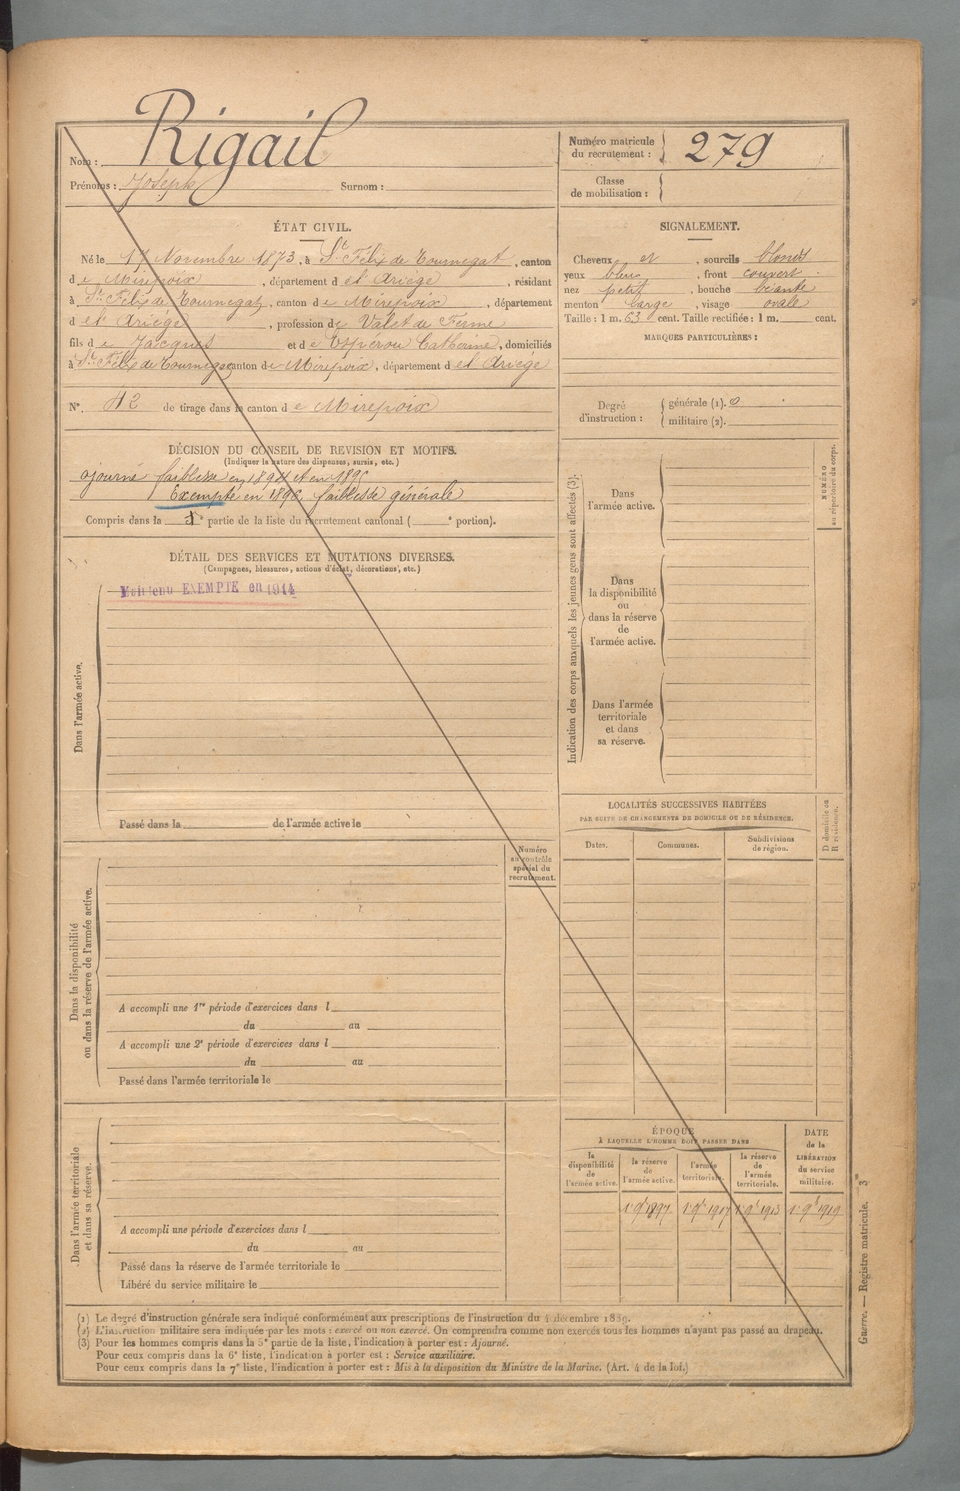 Rigail
Nom :
Prénoms : Joseph Surnom :
Numéro matricule du recrutement : 279
Classe de mobilisation :
ÉTAT CIVIL.
Né le 17 Novembre 1873, à St Félix de Tournegat, canton
de Mirepoix, département del Ariège, résidant
à St Félix de Tournegat, canton de Mirepoix, département
del Ariège, profession de Valet de Ferme
fils de Jacques et de Esperou Catherine, domiciliés
à St Félix de Tournegat canton de Mirepoix, département del Ariège
N° 42 de tirage dans le canton de Mirepoix
SIGNALEMENT.
Cheveux et, sourcils blonds
yeux bleus, front couvert
nez petit, bouche béante
menton large, visage ovale
Taille : 1 m. 63 cent. Taille rectifiée : 1 m. cent.
MARQUES PARTICULIÈRES :
Degré d'instruction : générale (1). 0
militaire (2).
DÉCISION DU CONSEIL DE REVISION ET MOTIFS.
(Indiquer la nature des dispenses, sursis, etc.)
ajourné faiblesse en 1894 et en 1895
Exempté en 1896 faiblesse générale
Compris dans la partie de la liste du recrutement cantonal ( e portion).
DÉTAIL DES SERVICES ET MUTATIONS DIVERSES.
(Campagnes, blessures, actions d'éclat, décorations, etc.)
Maintenu EXEMPTÉ en 1914
Dans l'armée active.
Passé dans la de l'armée active le
Numéro au contrôle spécial du recrutement.
Dans la disponibilité ou dans la réserve de l'armée active.
A accompli une 1re période d'exercices dans l
du au
A accompli une 2e période d'exercices dans l
du au
Passé dans l'armée territoriale le
Dans l'armée territoriale et dans sa réserve.
A accompli une période d'exercices dans l
du au
Passé dans la réserve de l'armée territoriale le
Libéré du service militaire le
Indication des corps auxquels les jeunes gens sont affectés (3).
Dans l'armée active.
Dans la disponibilité ou dans la réserve de l'armée active.
Dans l'armée territoriale et dans sa réserve.
NUMÉRO au répertoire du corps.
LOCALITÉS SUCCESSIVES HABITÉES
PAR SUITE DE CHANGEMENTS DE DOMICILE OU DE RÉSIDENCE.
Dates. Communes. Subdivisions de région.
D domicile ou R résidence.
ÉPOQUE
À LAQUELLE L'HOMME DOIT PASSER DANS
la disponibilité de l'armée active.
la réserve de l'armée active.
l'armée territoriale.
la réserve de l'armée territoriale.
DATE de la LIBÉRATION du service militaire.
1 9bre 1897 1 9bre 1907 1 9bre 1913 1 9bre 1919
(1) Le degré d'instruction générale sera indiqué conformément aux prescriptions de l'instruction du 4 décembre 1889.
(2) L'instruction militaire sera indiquée par les mots : exercé ou non exercé. On comprendra comme non exercés tous les hommes n'ayant pas passé au drapeau.
(3) Pour les hommes compris dans la 5e partie de la liste, l'indication à porter est : Ajourné.
Pour ceux compris dans la 6e liste, l'indication à porter est : Service auxiliaire.
Pour ceux compris dans la 7e liste, l'indication à porter est : Mis à la disposition du Ministre de la Marine. (Art. 4 de la loi.)
Guerre. — Registre matricule. 3